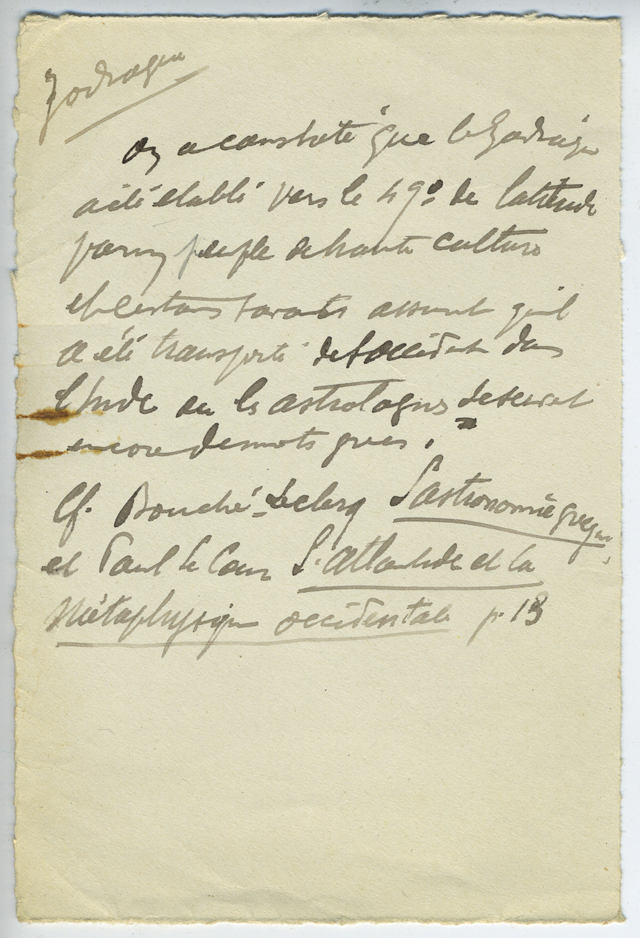 Zodiaque
On a constaté que le Zodiaque
a été établi vers le 49° de latitude
par un peuple de haute culture
et certains savants assurent qu'il
a été transporté de l'occident dans
l'Inde où les astrologues se servent
encore de mots grecs.
Cf. Bouché-Leclerq L'astronomie grecque
et Paul le Cour L'Atlantide et la
Métaphysique occidentale p. 13